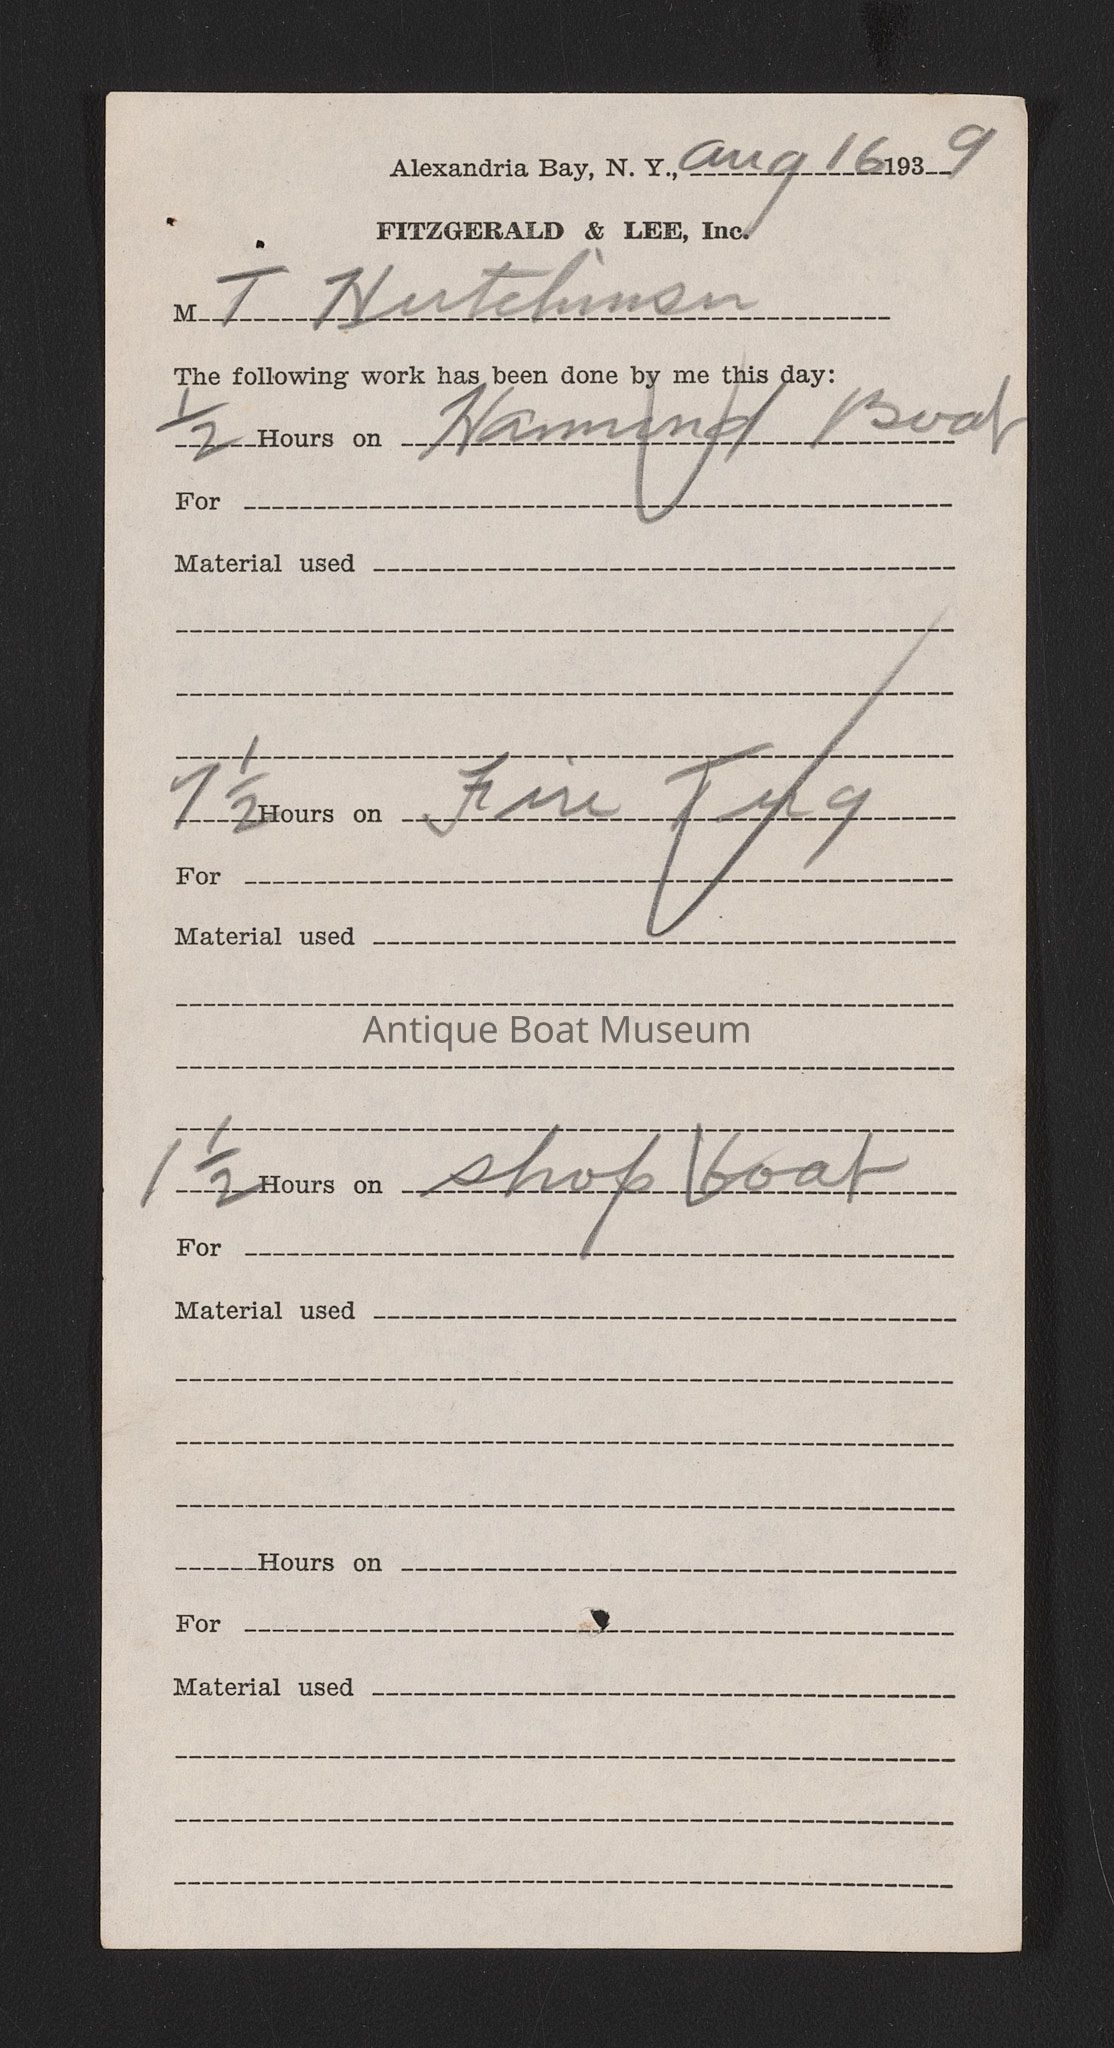 Alexandria Bay, N. Y., Aug 16 1939
FITZGERALD & LEE, Inc.
M T Hutchinson
The following work has been done by me this day:
1/2 Hours on Hammond Boat
For
Material used
7 1/2 Hours on Fire Tug
For
Material used
Antique Boat Museum
1 1/2 Hours on shop boat
For
Material used
Hours on
For
Material used